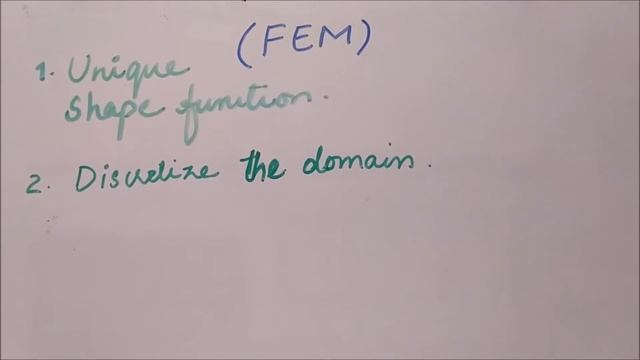 (FEM)
1. Unique
Shape function.
2. Discretize the domain.